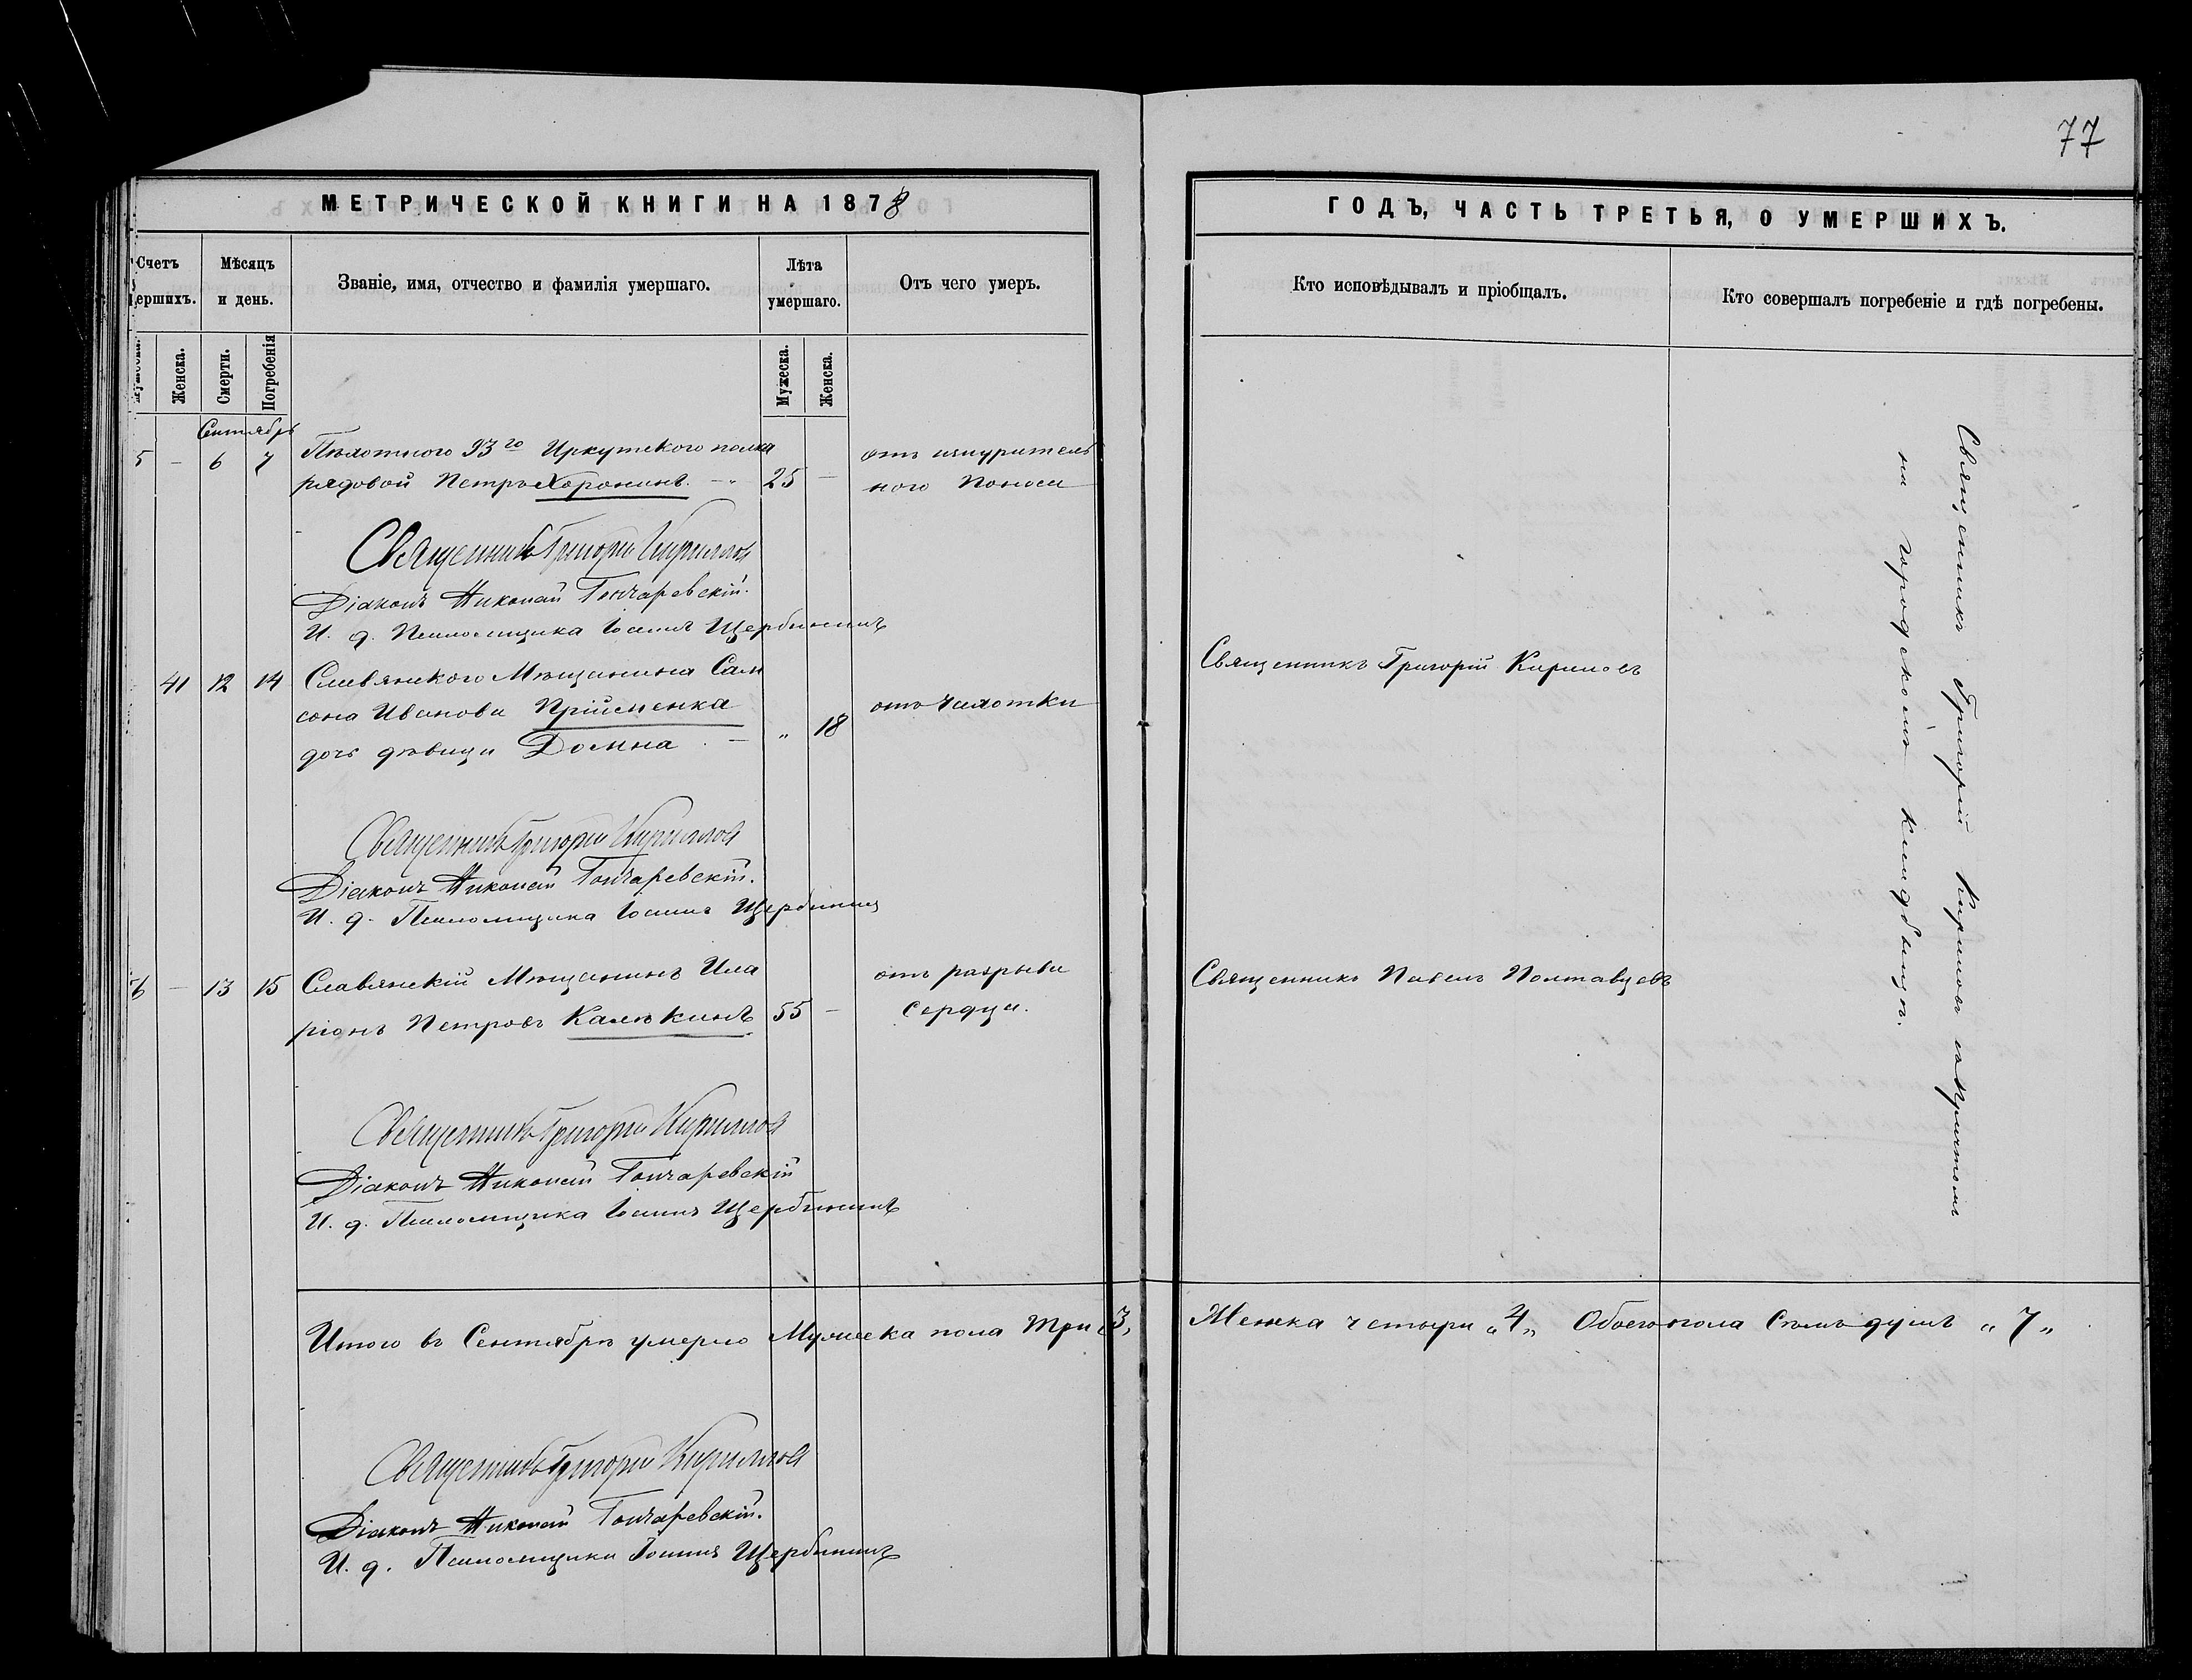 77
МЕТРИЧЕСКОЙ КНИГИ НА 1878
ГОДЪ, ЧАСТЬ ТРЕТЬЯ, О УМЕРШИХЪ.
Счетъ
ершихъ.
Мѣсяцъ
и день.
Званіе, имя, отчество и фамилія умершаго.
Лѣта
умершаго.
Отъ чего умеръ.
Кто исповѣдывалъ и пріобщалъ.
Кто совершалъ погребеніе и гдѣ погребены.
Женска.
Смерти.
Погребенія
Мужеска.
Женска.
Сентябрь
5 — 6 7 Пѣхотного 93го Иркутского полка
рядовой Петръ Хоронинъ. — 25 —
отъ изнурител
ного поноса
Священникъ Григорій Кириллов
Діаконъ Николай Гончаревскій.
И. д. Псаломщика Іоаннъ Щербининъ
41 12 14 Славянского Мѣщанина Сам
сона Иванова Прійменка
дочь дѣвица Домна. — „ 18
отъ чахотки
Священникъ Григорій Кириловъ
Священникъ Григорій Кириллов
Діаконъ Николай Гончаревскій.
И. д. Псаломщика Іоаннъ Щербининъ
6 — 13 15 Славянскій Мѣщанинъ Ила
ріонъ Петровъ Калѣкинъ 55 —
отъ разрыва
сердца.
Священникъ Павелъ Полтавцевъ
Священникъ Григорій Кириллов
Діаконъ Николай Гончаревскій
И. д. Псаломщика Іоаннъ Щербининъ
Священникъ Григорій Кириловъ съ причтомъ
на городскомъ кладбищѣ.
Итого въ Сентябрѣ умерло Мужеска пола три „3„ Женска четыри „4„ Обоего пола Семь душъ „7„
Священникъ Григорій Кириллов
Діаконъ Николай Гончаревскій.
И. д. Псаломщика Іоаннъ Щербининъ